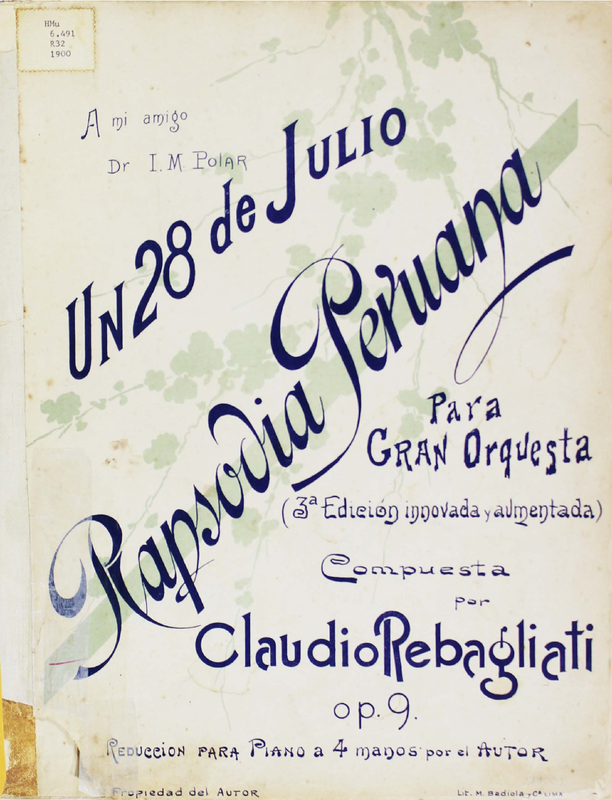 HMu
6.491
R32
1900
A mi amigo
Dr I. M. Polar
Un 28 de Julio
Rapsodia Peruana
Para
GRAN Orquesta
(3ª Edición innovada y aumentada)
Compuesta
por
Claudio Rebagliati
op. 9.
Reduccion para Piano a 4 manos por el Autor
Propiedad del Autor
Lit. M. Badiola y Cª Lima